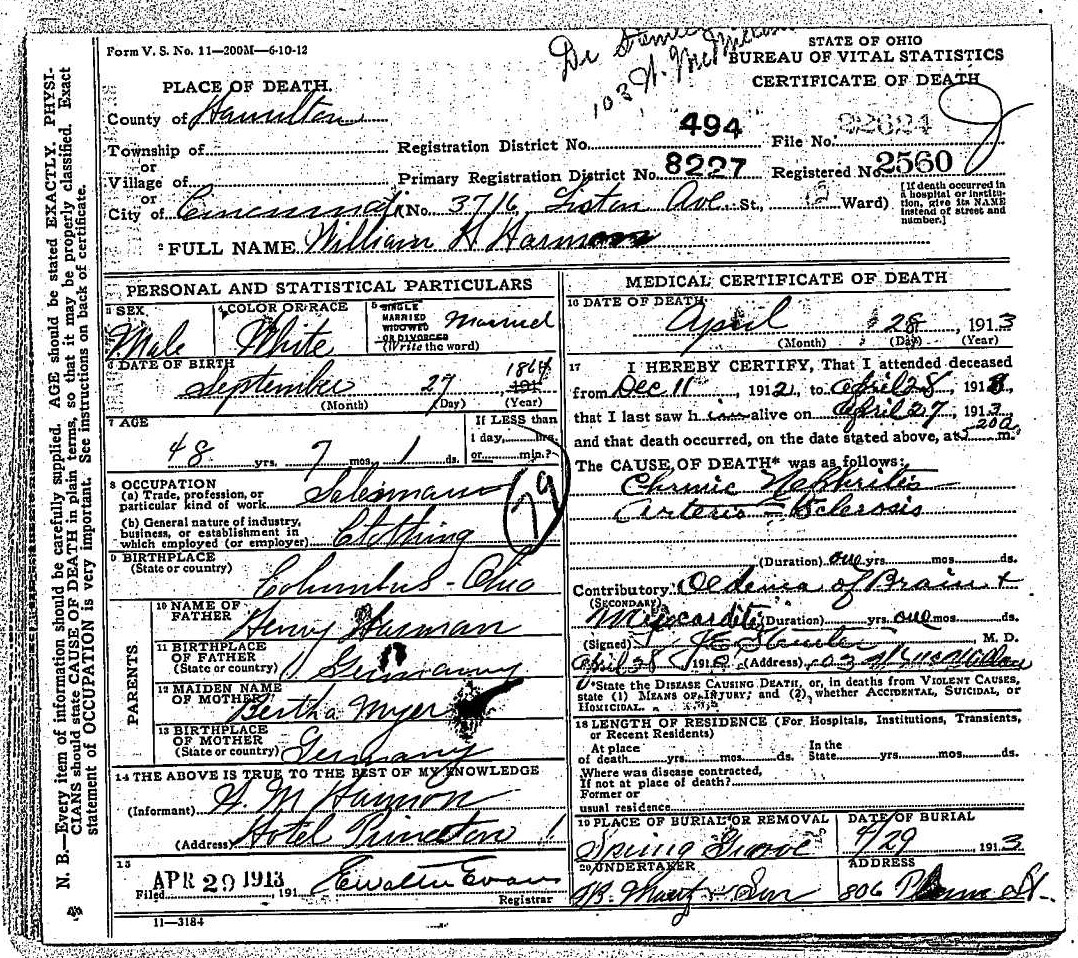 Form V. S. No. 11—200M—6-10-12
STATE OF OHIO
BUREAU OF VITAL STATISTICS
CERTIFICATE OF DEATH
Dr
103 W. McMillan
PLACE OF DEATH.
County of Hamilton
Township of
or
Village of
or
City of Cincinnati (No. 3716, Liston Ave. St., Ward)
Registration District No. 494
File No. 22624
Primary Registration District No. 8227
Registered No. 2560
[If death occurred in a hospital or institution, give its NAME instead of street and number.]
2 FULL NAME William H Harmon
PERSONAL AND STATISTICAL PARTICULARS
3 SEX
Male
4 COLOR OR RACE
White
5 SINGLE
MARRIED
WIDOWED
OR DIVORCED
(Write the word)
Married
6 DATE OF BIRTH
September 27 1864
(Month) (Day) (Year)
7 AGE
48 yrs. 7 mos. 1 ds.
If LESS than
1 day, hrs.
or min.?
8 OCCUPATION
(a) Trade, profession, or
particular kind of work Salesman
(b) General nature of industry,
business, or establishment in
which employed (or employer) Clothing
79
9 BIRTHPLACE
(State or country)
Columbus - Ohio
PARENTS
10 NAME OF
FATHER
Henry Harman
11 BIRTHPLACE
OF FATHER
(State or country) Germany
12 MAIDEN NAME
OF MOTHER
Bertha Myer
13 BIRTHPLACE
OF MOTHER
(State or country) Germany
14 THE ABOVE IS TRUE TO THE BEST OF MY KNOWLEDGE
(Informant)
(Address) Hotel Princeton
15
Filed APR 29 1913 191
Registrar
11—3184
MEDICAL CERTIFICATE OF DEATH
16 DATE OF DEATH
April 28, 1913
(Month) (Day) (Year)
17 I HEREBY CERTIFY, That I attended deceased
from Dec 11 1912, to April 28, 1913,
that I last saw h im alive on April 27, 1913,
and that death occurred, on the date stated above, at 5 20 a m.
The CAUSE OF DEATH* was as follows:
Chronic Nephritis
Arterio-Sclerosis
(Duration) one yrs. mos. ds.
Contributory Oedema of Brain +
(SECONDARY)
Myocarditis (Duration) yrs. one mos. ds.
(Signed) M. D.
April 28 191 (Address) 103 W McMillan
*State the DISEASE CAUSING DEATH, or, in deaths from VIOLENT CAUSES,
state (1) MEANS OF INJURY; and (2) whether ACCIDENTAL, SUICIDAL, or
HOMICIDAL.
18 LENGTH OF RESIDENCE (For Hospitals, Institutions, Transients,
or Recent Residents)
At place
of death yrs. mos. ds.
In the
State yrs. mos. ds.
Where was disease contracted,
If not at place of death?
Former or
usual residence
19 PLACE OF BURIAL OR REMOVAL
Spring Grove
DATE OF BURIAL
4/29 1913
20 UNDERTAKER
& Son
ADDRESS
806 St.
N. B.—Every item of information should be carefully supplied. AGE should be stated EXACTLY. PHYSI-
CIANS should state CAUSE OF DEATH in plain terms, so that it may be properly classified. Exact
statement of OCCUPATION is very important. See instructions on back of certificate.